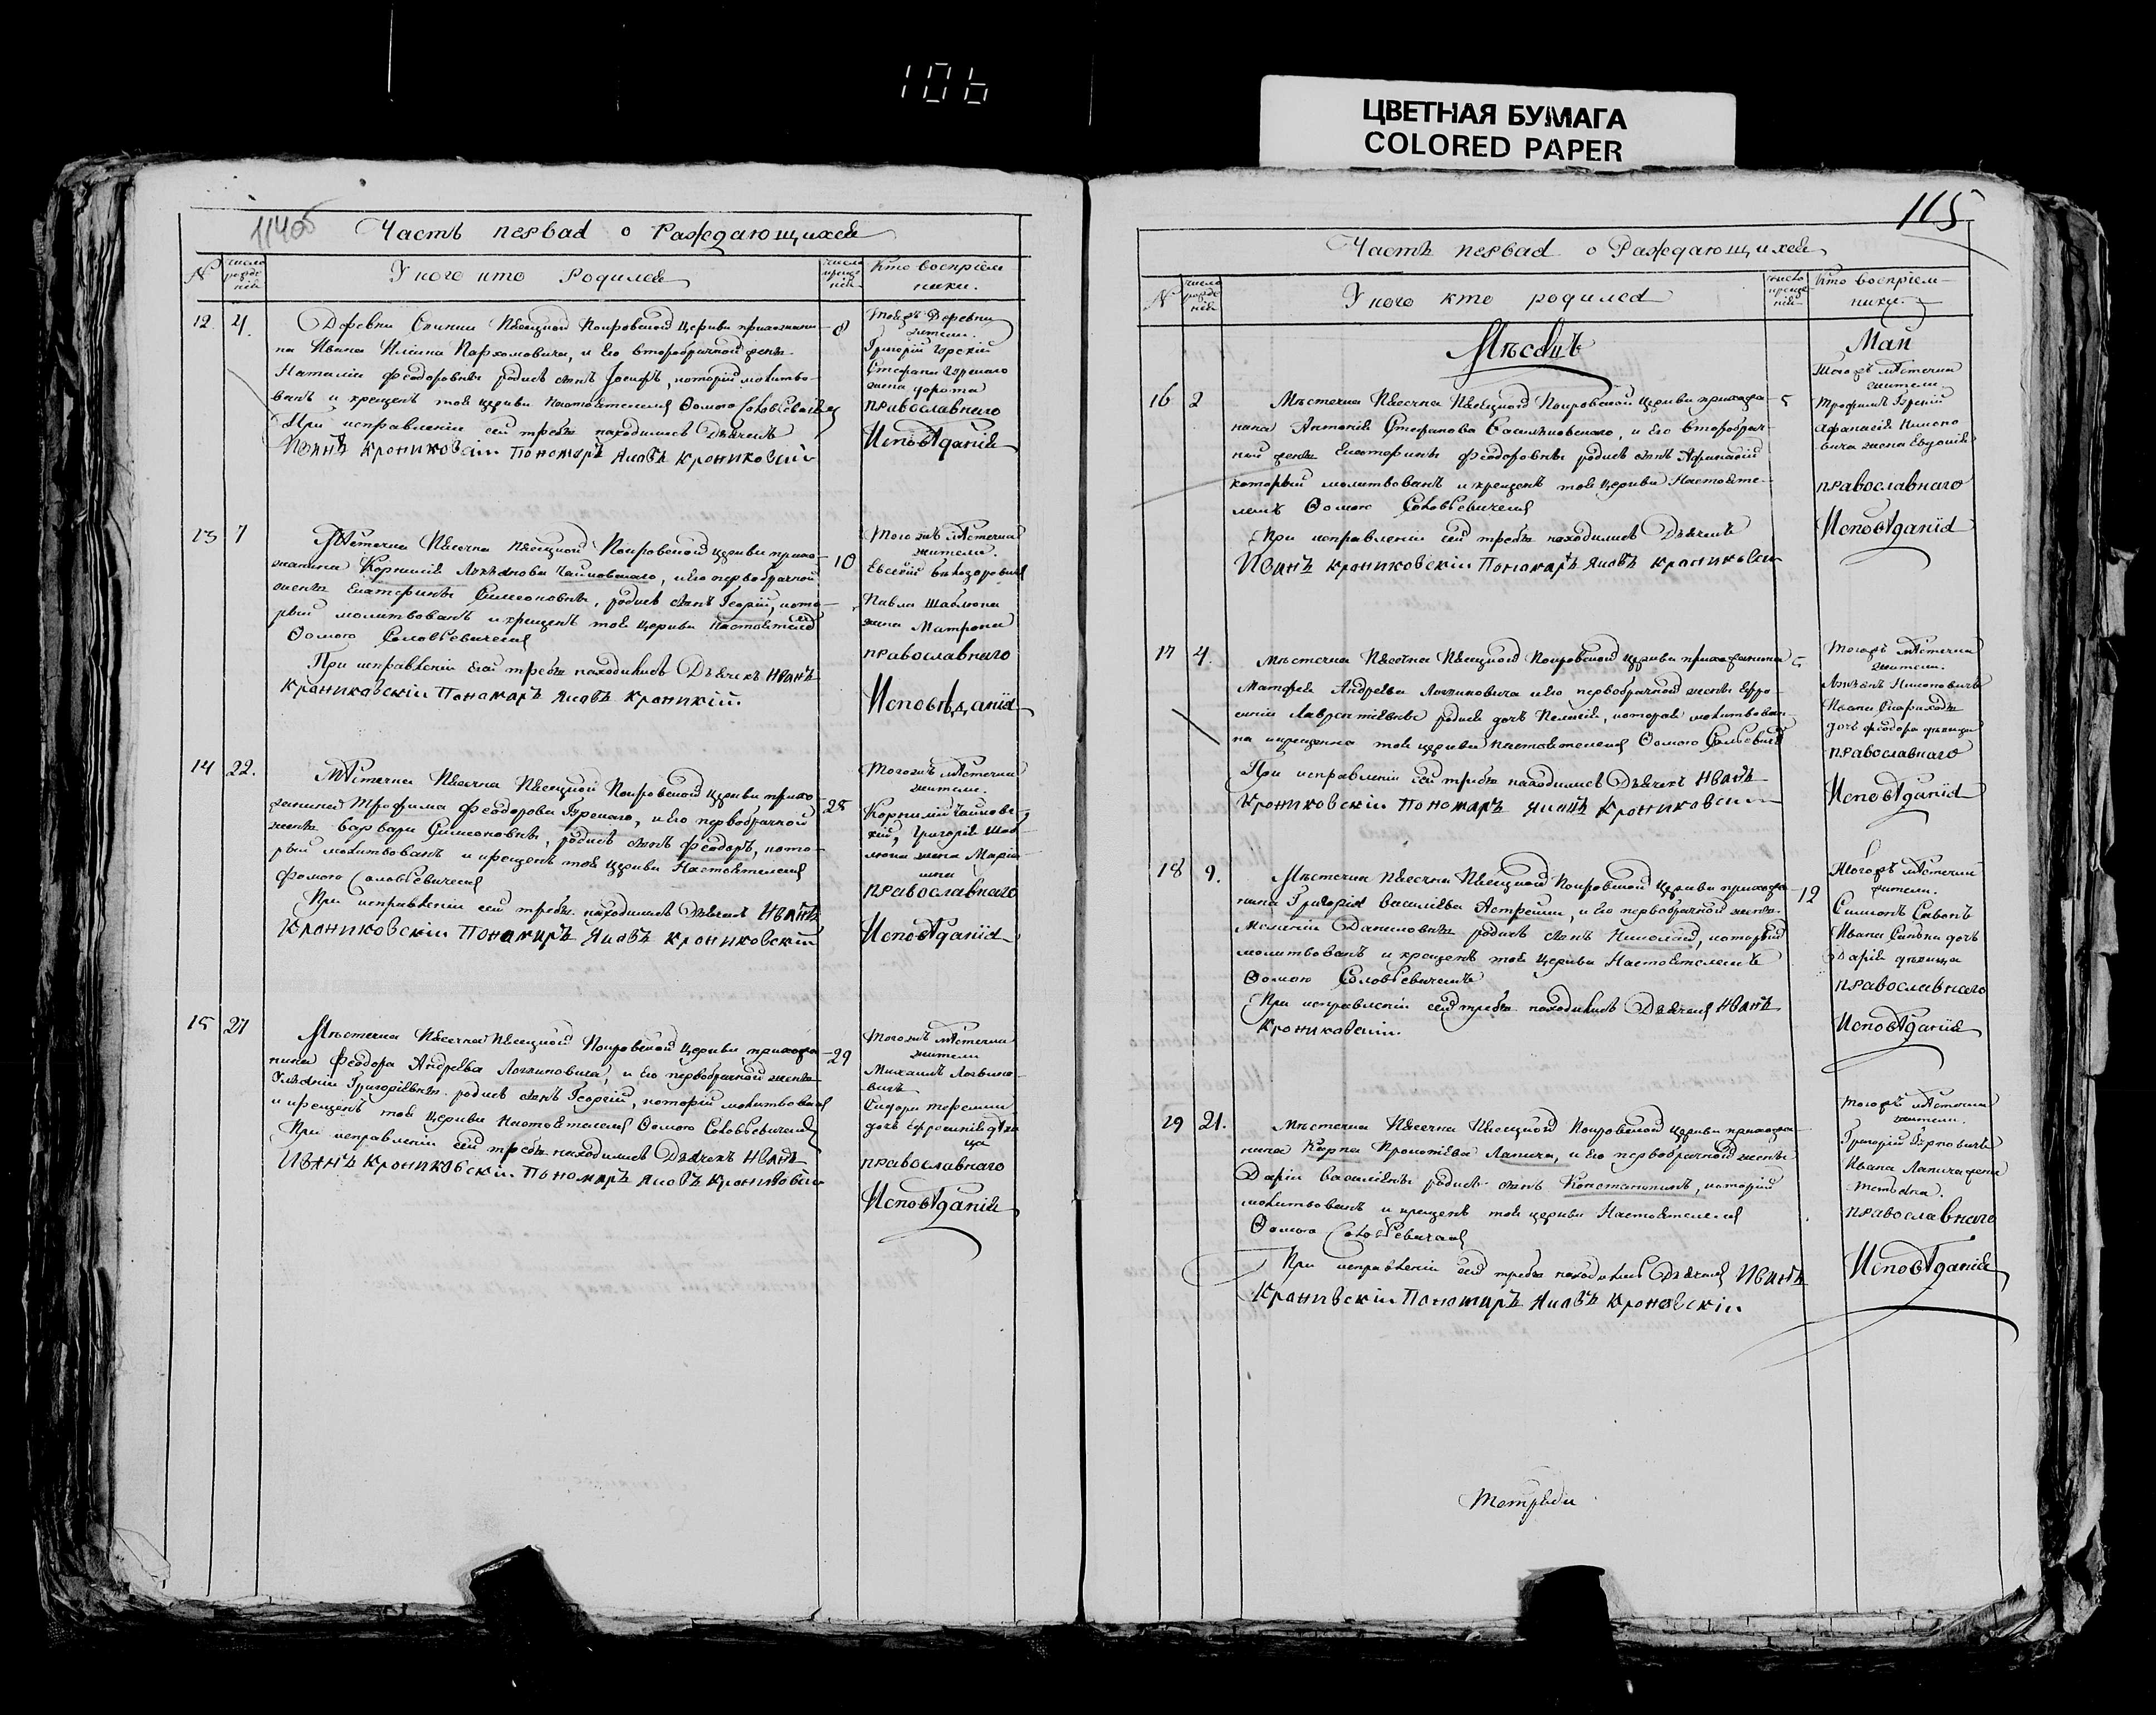 106
ЦВЕТНАЯ БУМАГА
COLORED PAPER
114об
Часть первая о Раждающихся
№
число рожде нія
У кого кто Родился
число креще нія
Кто воспріем
ники.
12. 4.
Деревни Пясецкой Покровской Церкви прихожани-
на Ивана Ильина Пархомовича, и Его второбрачной жены
Наталіи Феодоровны родися сынъ Іосифъ, который молитво-
ванъ и крещенъ той церкви Настоятелемъ Ѳомою Соловьевичемъ
При исправленіи сей требы находились Дьячекъ
Иванъ Крониковскій Пономаръ Яковъ Крониковскій
8
Тоежъ Деревни
жители.
Григорій Гурскій
Стефана Гурскаго
жена Дорота
православнаго
Исповѣданія
13 7
Мѣстечка Пясечна Пясецкой Покровской Церкви прихо-
жанина Корнилія Лукьянова Чайковскаго, и Его первобрачной
жены Екатерины Симеоновны, родися сынъ Георгій, кото-
рый молитвованъ и крещенъ той Церкви Настоятелемъ
Ѳомою Соловьевичемъ
При исправленіи Сей требы находились Дьячекъ Иванъ
Крониковскій Пономаръ Яковъ Кроникій
10
Тогожъ Мѣстечка
жители.
Евсевій
Павла Шаблюка
жена Матрона
православнаго
Исповѣданія
14 22.
Мѣстечка Пясечна Пясецкой Покровской Церкви прихо-
жанина Трофима Феодорова Гурскаго, и Его первобрачной
жены Варвары Симеоновны, родися сынъ Феодоръ, кото-
рый молитвованъ и крещенъ той Церкви Настоятелемъ
Фомою Соловьевичемъ
При исправленіи сей требы находились Дьячекъ Иванъ
Крониковскій Пономаръ Яковъ Крониковскій
25
Тогожъ Мѣстечка
жители.
Корнилій Чайковс-
кій, Григорія Шаб-
люка жена Маріа-
нна
православнаго
Исповѣданія
15 27
Мѣстечка Пясечна Пясецкой Покровской Церкви прихожа-
нина Феодора Андреева Логвиновича, и Его первобрачной жены
Уліяніи Григоріевны родися сынъ Георгій, который молитвованъ
и крещенъ той Церкви Настоятелемъ Ѳомою Соловьевичемъ
При исправленіи Сей требы находились Дьячекъ Иванъ
Иванъ Крониковскій Пономаръ Яковъ Крониковскій
29
Тогожъ Мѣстечка
жители
Михаилъ Логвино-
вичъ
Сидора
дочь Ефросинія дѣви
ца
православнаго
Исповѣданія
115
Часть первая о Раждающихся
№
число рожде нія
У кого кто родился
число креще нія
Кто воспріем-
ники.
Мѣсяцъ
Май
16 2
Мѣстечка Пясечна Пясецкой Покровской Церкви прихожа-
нина Антонія Стефанова, и Его второбрач-
ной жены Екатерины Феодоровны родися сынъ Афанасій
который молитвованъ и крещенъ той Церкви Настояте-
лемъ Ѳомою Соловьевичемъ
При исправленіи сей требы находились Дьячекъ
Иванъ Крониковскій Пономаръ Яковъ Крониковскій
5
Тогожъ Мѣстечка
жители
Трофимъ Гурскій
Афанасія
жена Евдокія
православнаго
Исповѣданія
17 4.
Мѣстечка Пясечна Пясецкой Покровской Церкви прихожанина
Матфея Андреева Логвиновича и Его первобрачной жены Ефро-
синіи Лаврентіевны родися дочь Пелагія, которая молитвован-
на и крещенна той церкви Настоятелемъ Ѳомою Соловьевичемъ
При исправленіи сей требы находились Дьячекъ Иванъ
Крониковскій Пономаръ Яковъ Крониковскій
5
Тогожъ Мѣстечка
жители.
Лукьянъ
Ивана
дочь Феодора дѣвица
православнаго
Исповѣданія
18 9.
Мѣстечка Пясечна Пясецкой Покровской Церкви прихожа-
нина Григорія Василіева, и Его первобрачной жены
Меланіи Даниловны родися сынъ Николай, который
молитвованъ и крещенъ той Церкви Настоятелемъ
Ѳомою Соловьевичемъ
При исправленіи сей требы находились Дьячекъ Иванъ
Крониковскій.
12
Тогожъ Мѣстечка
жители.
Симонъ
Ивана дочь
Дарія дѣвица
православнаго
Исповѣданія
19 21.
Мѣстечка Пясечна Пясецкой Покровской Церкви прихожа-
нина Карпа Лапича, и Его первобрачной жены
Даріи Василіевны родися сынъ Константинъ, который
молитвованъ и крещенъ той церкви Настоятелемъ
Ѳомою Соловьевичемъ
При исправленіи сей требы находились Дьячекъ Иванъ
Кронивскій Пономаръ Яковъ Кроновскій
Тогожъ Мѣстечка
жители.
Григорій
Ивана Лапича жена
Татьяна.
православнаго
Исповѣданія